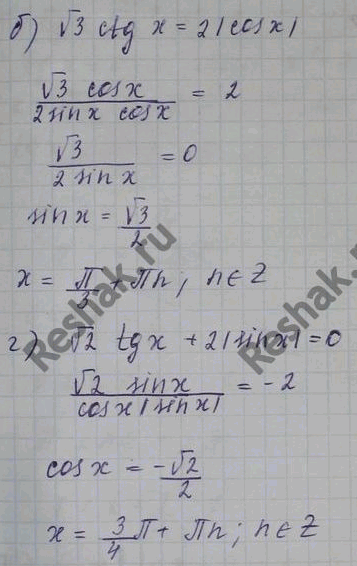 б) √3 ctg x = 2|cos x|
√3 cos x / 2 sin x cos x = 2
√3 / 2 sin x = 0
sin x = √3/2
x = π/3 + πn; n ∈ Z
г) √2 tg x + 2|sin x| = 0
√2 sin x / cos x |sin x| = -2
cos x = -√2/2
x = 3/4 π + πn; n ∈ Z
Reshak.ru
Reshak.ru